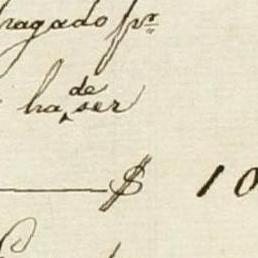 pagado pr
ha de ser
$ 10